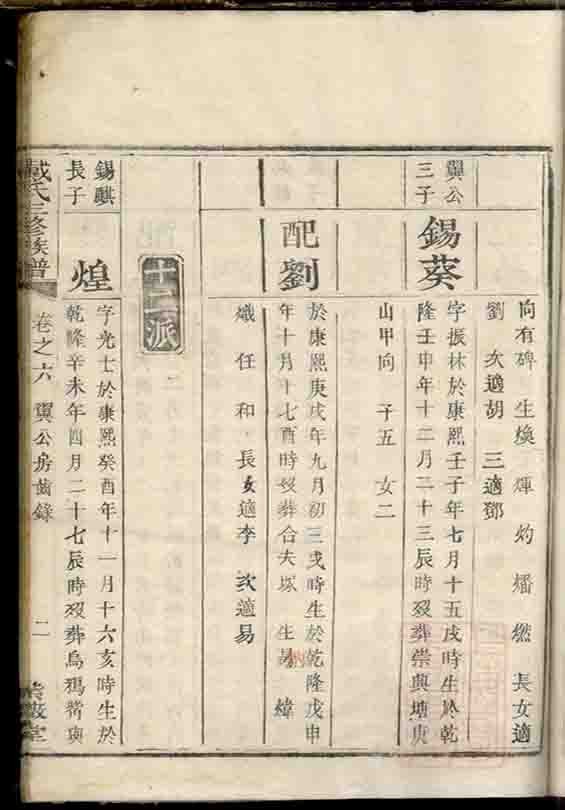 向有碑 生煥 煇 灼 燔 燃 長女適
劉 次適胡 三適鄧
翼公
三子
錫葵
字振林於康熙壬子年七月十五戌時生於乾
隆壬申年十二月二十三辰時歿葬崇興塘庚
山甲向 子五 女二
配劉
於康熙庚戌年九月初三戌時生於乾隆戊申
年十月十七酉時歿葬合夫塚 生 緯
熾 任 和 長女適李 次適易
十二派
錫麒
長子
煌
字光士於康熙癸酉年十一月十六亥時生於
乾隆辛未年四月二十七辰時歿葬烏鴉嘴
戴氏三修族譜
卷之六 翼公房齒錄
二